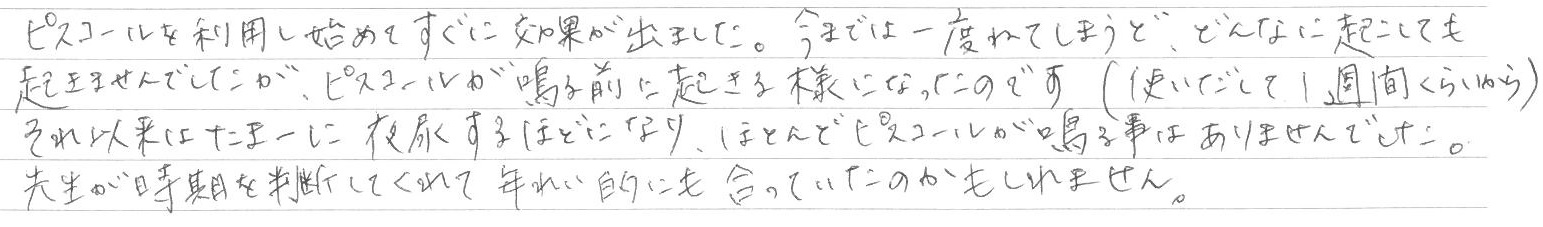 ピスコールを利用し始めてすぐに効果が出ました。今までは一度ねてしまうと、どんなに起こしても
起きませんでしたが、ピスコールが鳴る前に起きる様になったのです(使いだして1週間くらいから)
それ以来はたまーに夜尿するほどになり、ほとんどピスコールが鳴る事はありませんでした。
先生が時期を判断してくれて年れい的にも合っていたのかもしれません。